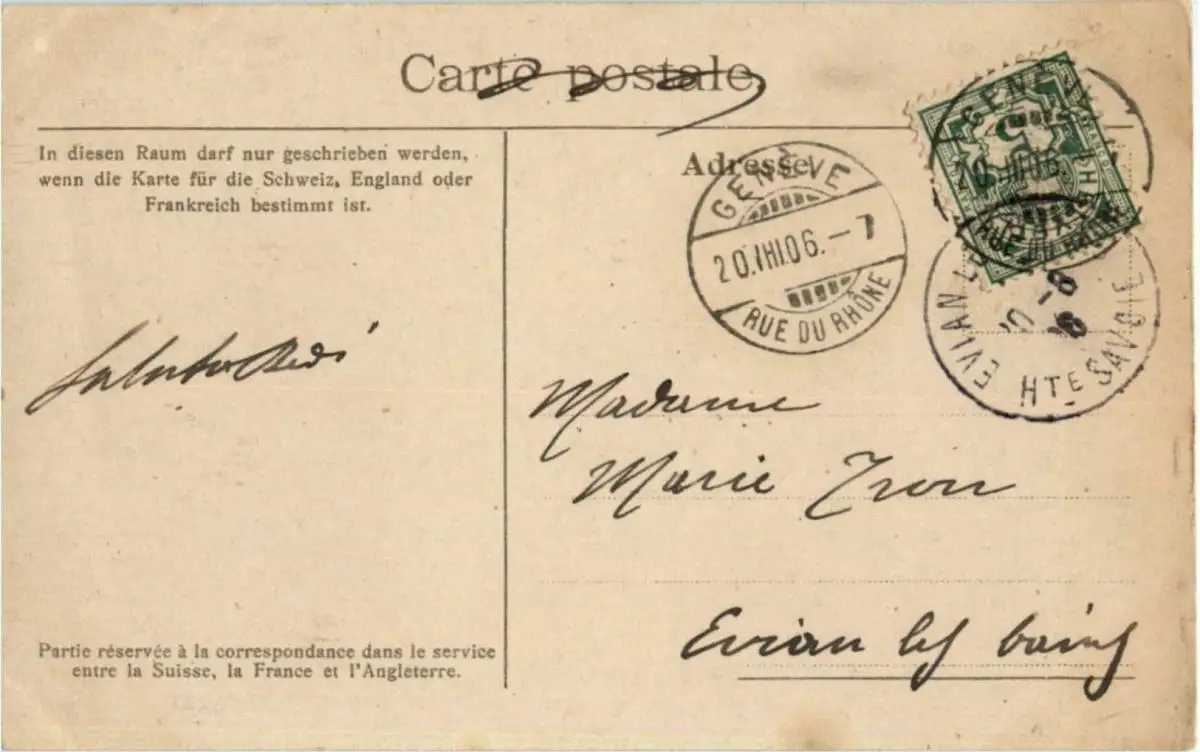 Carte postale
In diesen Raum darf nur geschrieben werden,
wenn die Karte für die Schweiz, England oder
Frankreich bestimmt ist.
Adresse
GENÈVE
20.VIII.06.–7
RUE DU RHÔNE
GENÈVE
20.VIII.06.
RUE DU RHÔNE
5
EVIAN LES
HTE SAVOIE
Madame
Marie
Evian les bains
Partie réservée à la correspondance dans le service
entre la Suisse, la France et l'Angleterre.